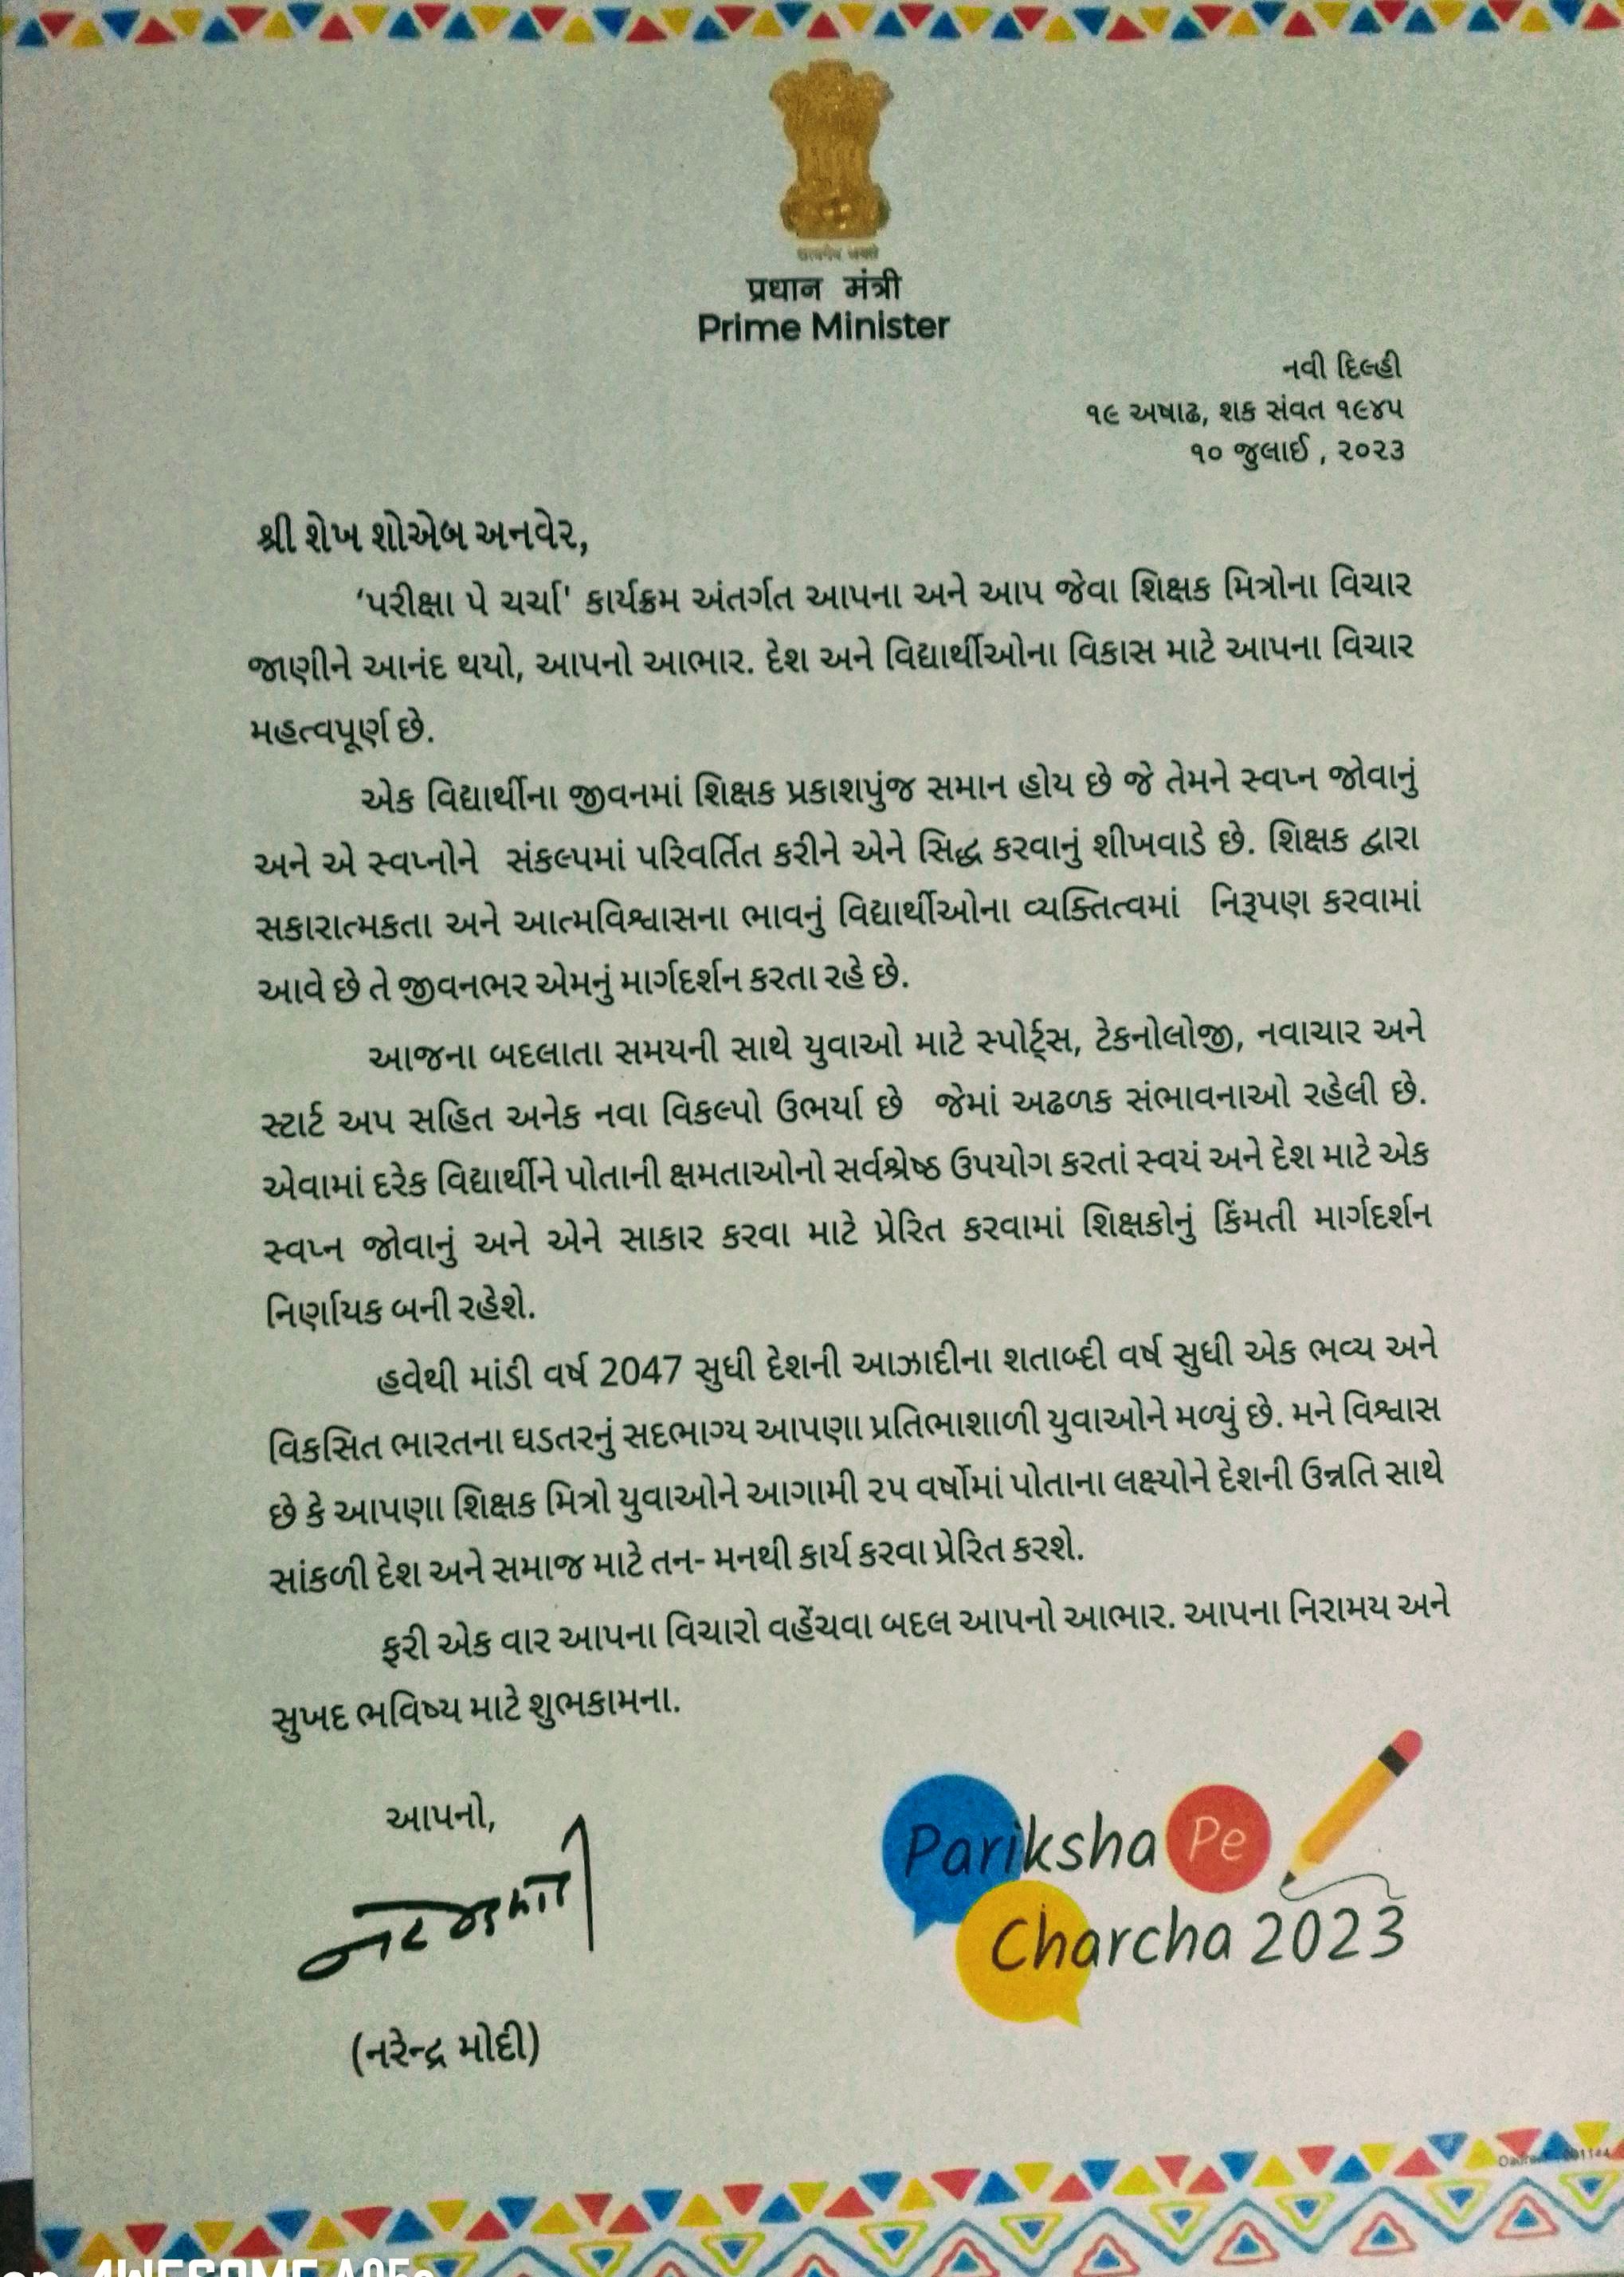 सत्यमेव जयते
प्रधान मंत्री
Prime Minister
નવી દિલ્હી
૧૯ અષાઢ, શક સંવત ૧૯૪૫
૧૦ જુલાઈ , ૨૦૨૩
શ્રી શેખ શોએબ અનવેર,
‘પરીક્ષા પે ચર્ચા' કાર્યક્રમ અંતર્ગત આપના અને આપ જેવા શિક્ષક મિત્રોના વિચાર
જાણીને આનંદ થયો, આપનો આભાર. દેશ અને વિદ્યાર્થીઓના વિકાસ માટે આપના વિચાર
મહત્વપૂર્ણ છે.
એક વિદ્યાર્થીના જીવનમાં શિક્ષક પ્રકાશપુંજ સમાન હોય છે જે તેમને સ્વપ્ન જોવાનું
અને એ સ્વપ્નોને સંકલ્પમાં પરિવર્તિત કરીને એને સિદ્ધ કરવાનું શીખવાડે છે. શિક્ષક દ્વારા
સકારાત્મકતા અને આત્મવિશ્વાસના ભાવનું વિદ્યાર્થીઓના વ્યક્તિત્વમાં નિરૂપણ કરવામાં
આવે છે તે જીવનભર એમનું માર્ગદર્શન કરતા રહે છે.
આજના બદલાતા સમયની સાથે યુવાઓ માટે સ્પોર્ટ્સ, ટેકનોલોજી, નવાચાર અને
સ્ટાર્ટ અપ સહિત અનેક નવા વિકલ્પો ઉભર્યા છે જેમાં અઢળક સંભાવનાઓ રહેલી છે.
એવામાં દરેક વિદ્યાર્થીને પોતાની ક્ષમતાઓનો સર્વશ્રેષ્ઠ ઉપયોગ કરતાં સ્વયં અને દેશ માટે એક
સ્વપ્ન જોવાનું અને એને સાકાર કરવા માટે પ્રેરિત કરવામાં શિક્ષકોનું કિંમતી માર્ગદર્શન
નિર્ણાયક બની રહેશે.
હવેથી માંડી વર્ષ 2047 સુધી દેશની આઝાદીના શતાબ્દી વર્ષ સુધી એક ભવ્ય અને
વિકસિત ભારતના ઘડતરનું સદભાગ્ય આપણા પ્રતિભાશાળી યુવાઓને મળ્યું છે. મને વિશ્વાસ
છે કે આપણા શિક્ષક મિત્રો યુવાઓને આગામી ૨૫ વર્ષોમાં પોતાના લક્ષ્યોને દેશની ઉન્નતિ સાથે
સાંકળી દેશ અને સમાજ માટે તન- મનથી કાર્ય કરવા પ્રેરિત કરશે.
ફરી એક વાર આપના વિચારો વહેંચવા બદલ આપનો આભાર. આપના નિરામય અને
સુખદ ભવિષ્ય માટે શુભકામના.
આપનો,
(નરેન્દ્ર મોદી)
Pariksha Pe
Charcha 2023